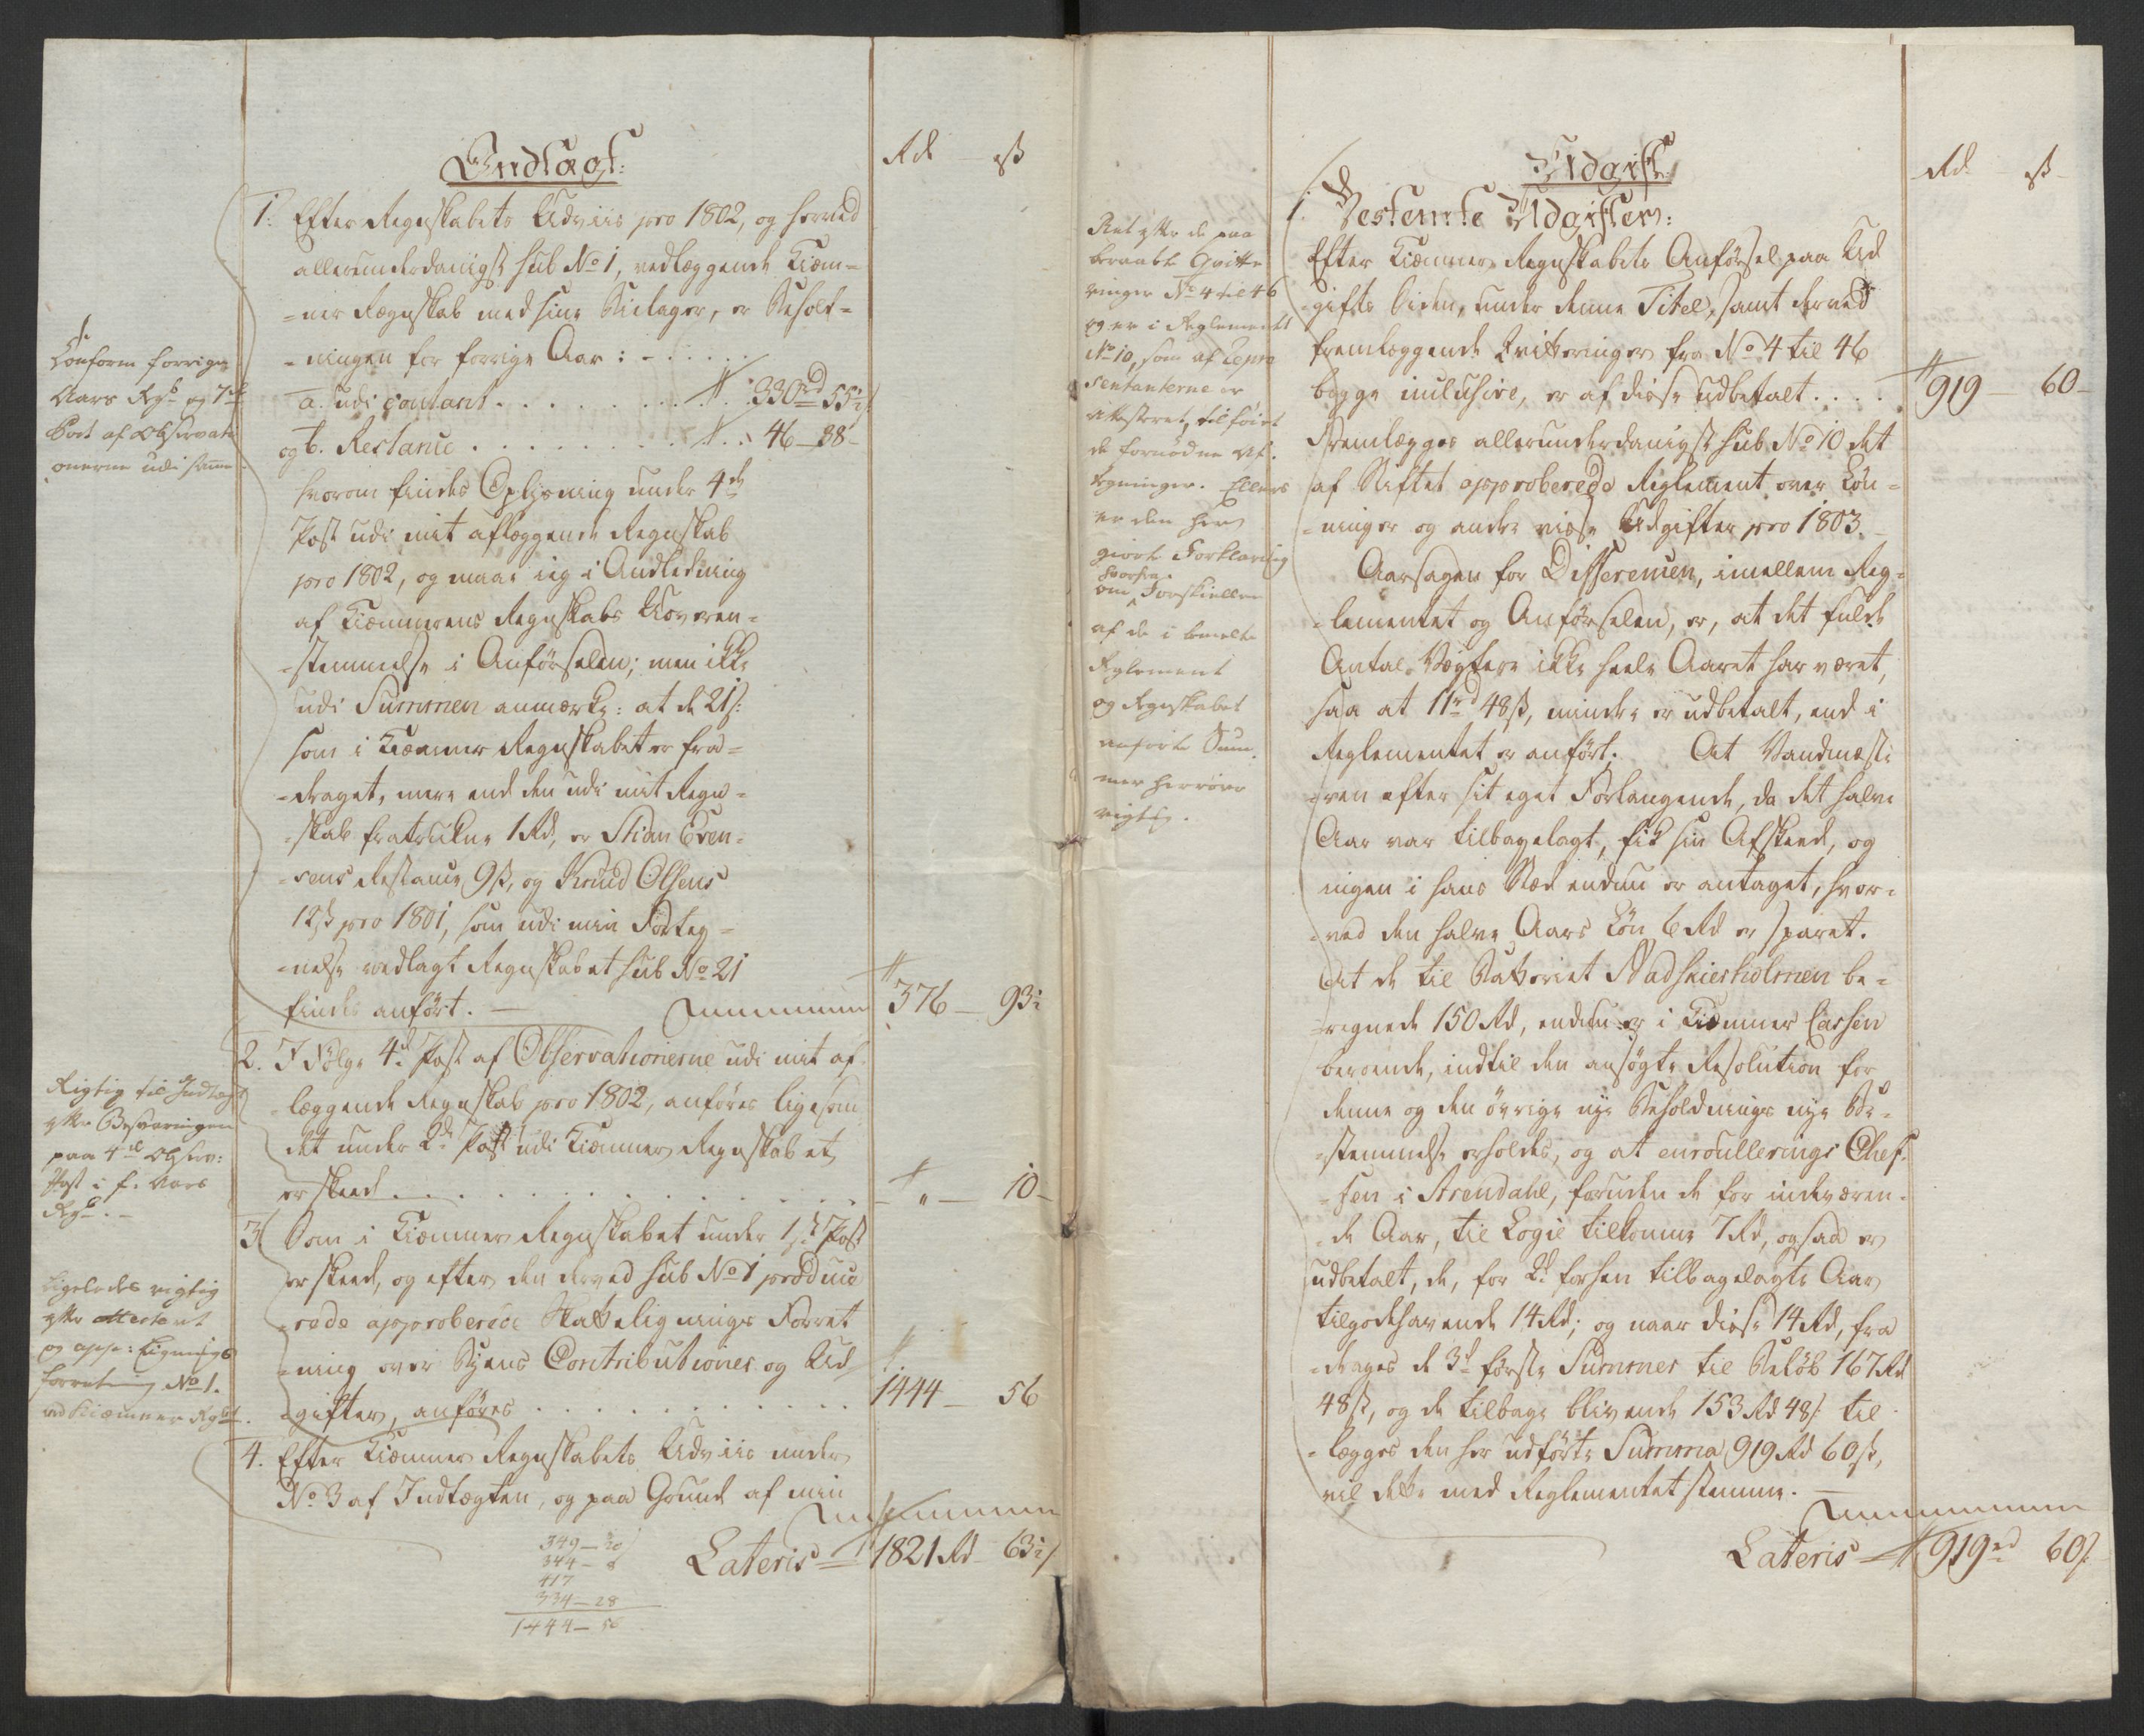 Indtægt:
Rd ß
1. Efter Regnskabets Udviis pro 1802, og herved
allerunderdanigst sub No 1, vedlæggende Kiæm-
-ner Regnskab med sine Bielager, er Behold-
-ningen for forrige Aar:
a. udi contant . . . . . 330rd 55½
og b. Restance . . . . . 46 – 38 –
hvorom findes Oplysning under 4de
Post udi mit aflæggende Regnskab
pro 1802, og maae jeg i Andledning
af Kiæmnerens Regnskabs Uoveren-
-stemmelse i Anførselen; men ikke
udi Summen anmærke: at de 21 ß:
som i Kiæmner Regnskabet er fra-
-draget, mere end den udi mit Regn-
-skab fratrukne 1 Rd, er Stian Even-
-sens Restance 9 ß, og Knud Olsens
12 ß pro 1801, som udi min Forteg-
-nelse vedlagt Regnskabet sub No 21
findes anført. — 376 – 93½
2. I Følge 4de Post af Observationerne udi mit af-
læggende Regnskab pro 1802, anføres ligesom
det under 2de Post udi Kiæmner Regnskabet
er skeed . . . . . „ – 10 –
3. Som i Kiæmner Regnskabet under 1ste Post
er skeed, og efter den derved sub No 1 produce-
-rede approberede Skattelignings Forret-
-ning over Byens Contributioner og Ud-
-gifter, anføres . . . . . 1444 – 56
4. Efter Kiæmner Regnskabets Udviis under
No 3 af Indtægten, og paa Grund af min
Lateris 1821 Rd – 63½
349 – 20
344 – 8
417
334 – 28
1444 – 56
Conform forrige
Aars Rgsk og 7de
Post af Observati
onerne udi samme
Rigtig til Indtægt
efter Besvaringen
paa 4de Observ:
Post i f. Aars
Rgsk. –
Ligeledes rigtig
efter attesteret
og app: Lignings
forretning No 1.
ved Kiæmner Rgsk.
Udgift:
Rd ß
1. Bestemte Udgifter:
Efter Kiæmner Regnskabets Anførsel paa Ud-
-gifts Siden, under denne Titel, samt derved
fremlæggende Qvitteringer fra No 4 til 46
begge inclusive, er af disse udbetalt . . . . 919 – 60 –
Fremlægges allerunderdanigst sub No 10 det
af Stiftet approberede Reglement over Løn-
-ninger og andre visse Udgifter pro 1803. –
Aarsagen for Differencen, imellem Reg-
-lementet og Anførselen, er, at det fulde
Antal Vægtere ikke heele Aaret har været,
saa at 11rd 48 ß, mindre er udbetalt, end i
Reglementet er anført. At Vandmeste-
-ren efter sit eget Forlangende, da det halve
Aar var tilbagelagt, fik sin Afskeed, og
ingen i hans Sted endnu er antaget, hvor-
-ved den halve Aars Løn 6 Rd er sparet.
At de til Batteriet Madskiersholmen be-
-regnede 150 Rd, endnu er i Kiæmner Cassen
beroende, indtil den ansøgte Resolution for
denne og den øvrige nye Beholdnings nye Be-
-stemmelse erholdes, og at enroullerings Chef-
-sen i Arendahl, foruden de for indeværen-
-de Aar, til Logie tilkomne 7 Rd, ogsaa er
udbetalt, de, for 2de forhen tilbagelagte Aar
tilgodehavende 14 Rd; og naar disse 14 Rd, fra
-drages de 3de første Summer til Beløb 167 Rd
48 ß, og de tilbage blivende 153 Rd 48 ß til-
-lægges den her udførte Summa 919 Rd 60 ß,
vil dette med Reglementet stemme. —
Lateris 919rd 60 ß.
Ret efter de paa
beraabte Qvitte
ringer No 4 til 46
og er i Reglementet
No 10, som af Repræ
sentanterne er
attesteret, tilføiet
de fornødne
Ellers
er den her
giorte Forklaring
om hvorfra Forskiellen
af de i bemelte
Reglement
og Regnskabet
anførte Sum
mer herrører
rigtig.